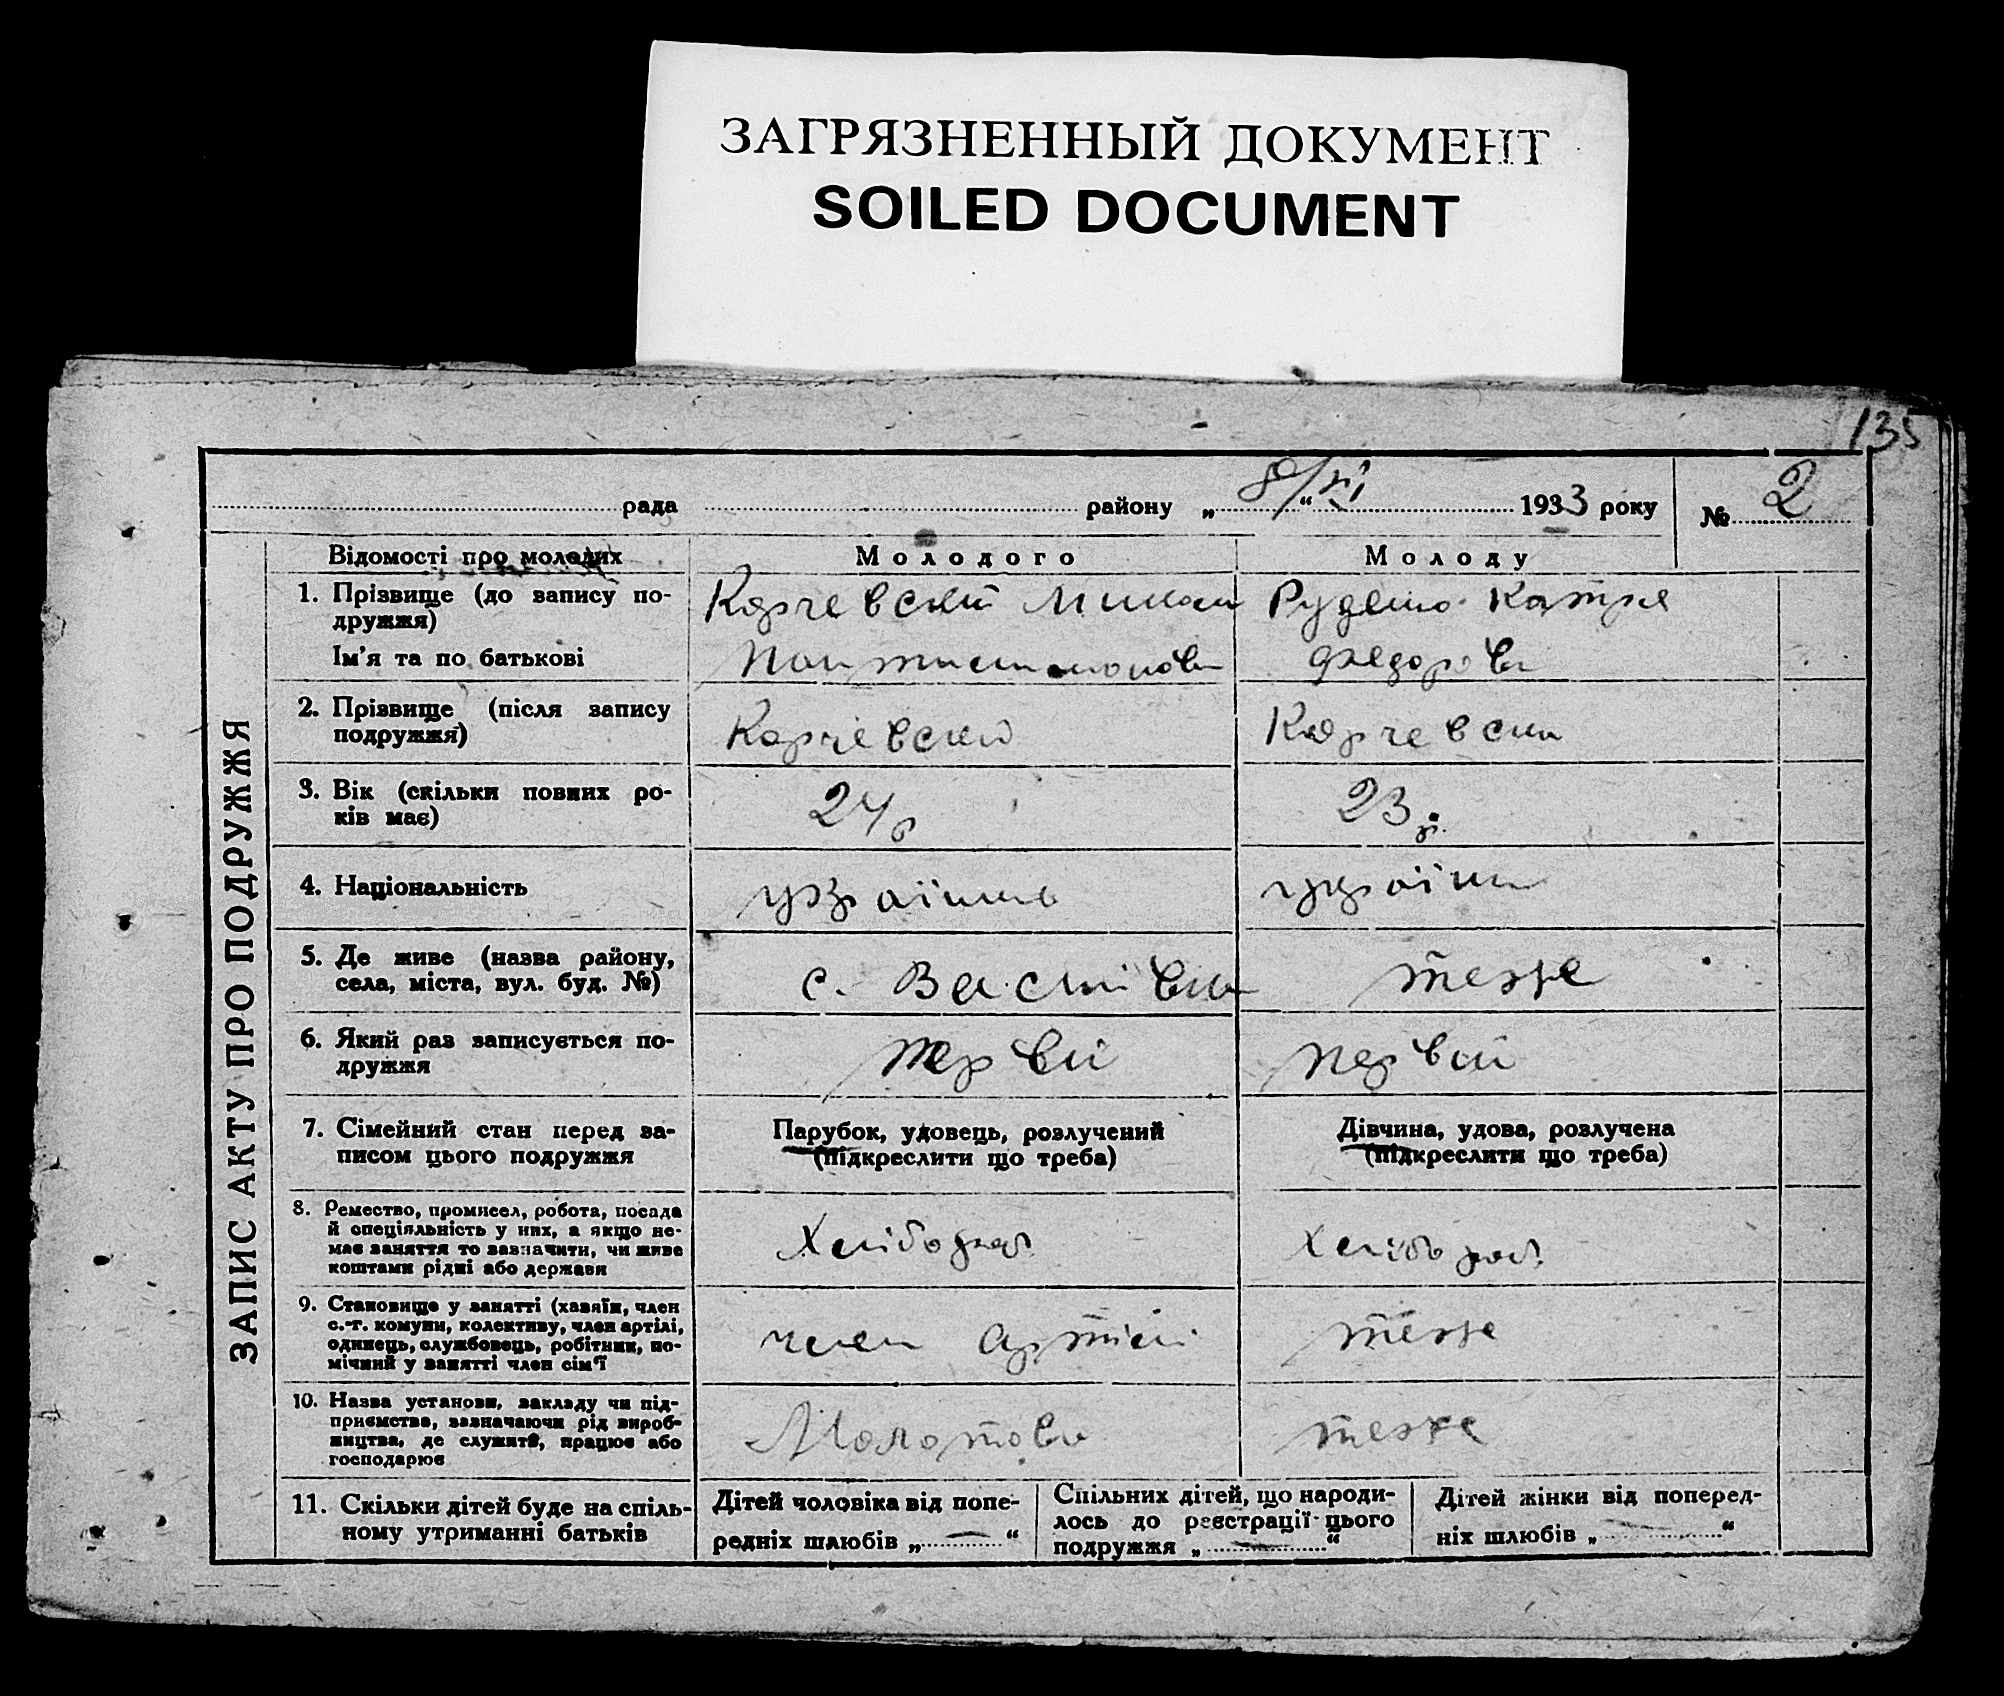 ЗАГРЯЗНЕННЫЙ ДОКУМЕНТ
SOILED DOCUMENT
135
рада района „8/XI“ 1933 року № 2
ЗАПИС АКТУ ПРО ПОДРУЖЖЯ
Відомості про молодих
Молодого
Молоду
1. Прізвище (до запису по-
дружжя)
Ім'я та по батькові
Корчевский
Руденко Катря
Федоров
2. Прізвище (після запису
подружжя)
Корчевский
Корчевски
3. Вік (скільки повних ро-
ків має)
24 р
23 р.
4. Національність
українець
україн
5. Де живе (назва району,
села, міста, вул. буд. №)
с.
теже
6. Який раз записується по-
дружжя
первий
первий
7. Сімейний стан перед за-
писом цього подружжя
Парубок, удовець, розлучений
(підкреслити що треба)
Дівчина, удова, розлучена
(підкреслити що треба)
8. Ремество, промисел, робота, посада
й спеціяльність у них, а якщо не-
має заняття то зазначити, чи живе
коштами рідні або держави
Хлібороб
Хлібороб
9. Становище у занятті (хазяїн, член
с.-г. комуни, колективу, член артілі,
одинець, службовець, робітник, по-
мічний у занятті член сім'ї
член артіл
теже
10. Назва установи, закладу чи під-
приємства, зазначаючи рід вироб-
ництва, де служить, працює або
господарює
Молотова
теже
11. Скільки дітей буде на спіль-
ному утриманні батьків
Дітей чоловіка від попе-
редніх шлюбів „—“
Спільних дітей, що народи-
лось до реєстрації цього
подружжя „—“
Дітей жінки від поперед-
ніх шлюбів „—“